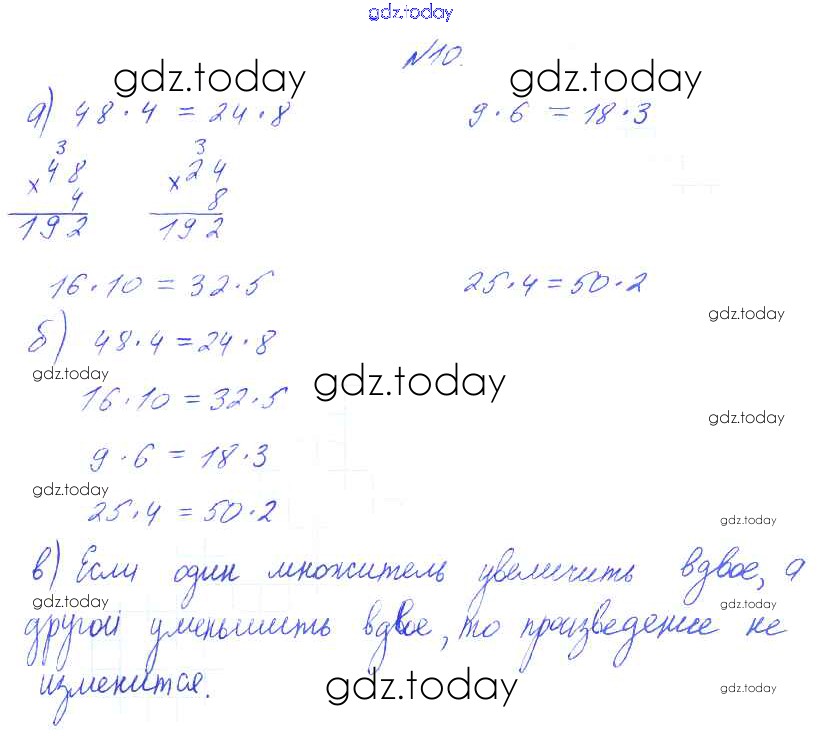 gdz.today
№10.
gdz.today gdz.today
а) 48·4 = 24·8 9·6 = 18·3
3 3
×48 ×24
4 8
192 192
16·10 = 32·5 25·4 = 50·2
gdz.today
б) 48·4 = 24·8
gdz.today
gdz.today
16·10 = 32·5
gdz.today
9·6 = 18·3
gdz.today
25·4 = 50·2
gdz.today
в) Если один множитель увеличить вдвое, а
gdz.today gdz.today
другой уменьшить вдвое, то произведение не
изменится.
gdz.today gdz.today